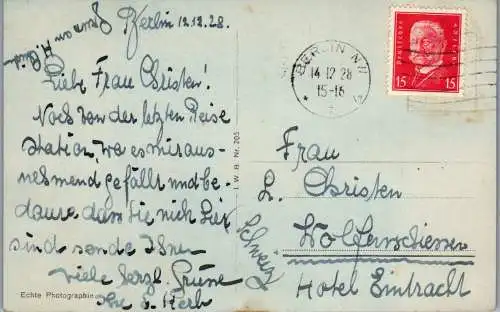 Berlin 12.12.28.
Liebe Frau Christen!
Noch von der letzten Reise
station, wo es mir aus-
nehmend gefällt und be-
daure dass Sie nich hier
sind sende Ihnen
viele herzl. Grüsse
Ihr
Echte Photographie
I. W. B. Nr. 205
BERLIN N
14.12.28
15-16
DEUTSCHES REICH
15 15
Frau
L. Christen
Wolfenschiessen
Hotel Eintracht
Schweiz